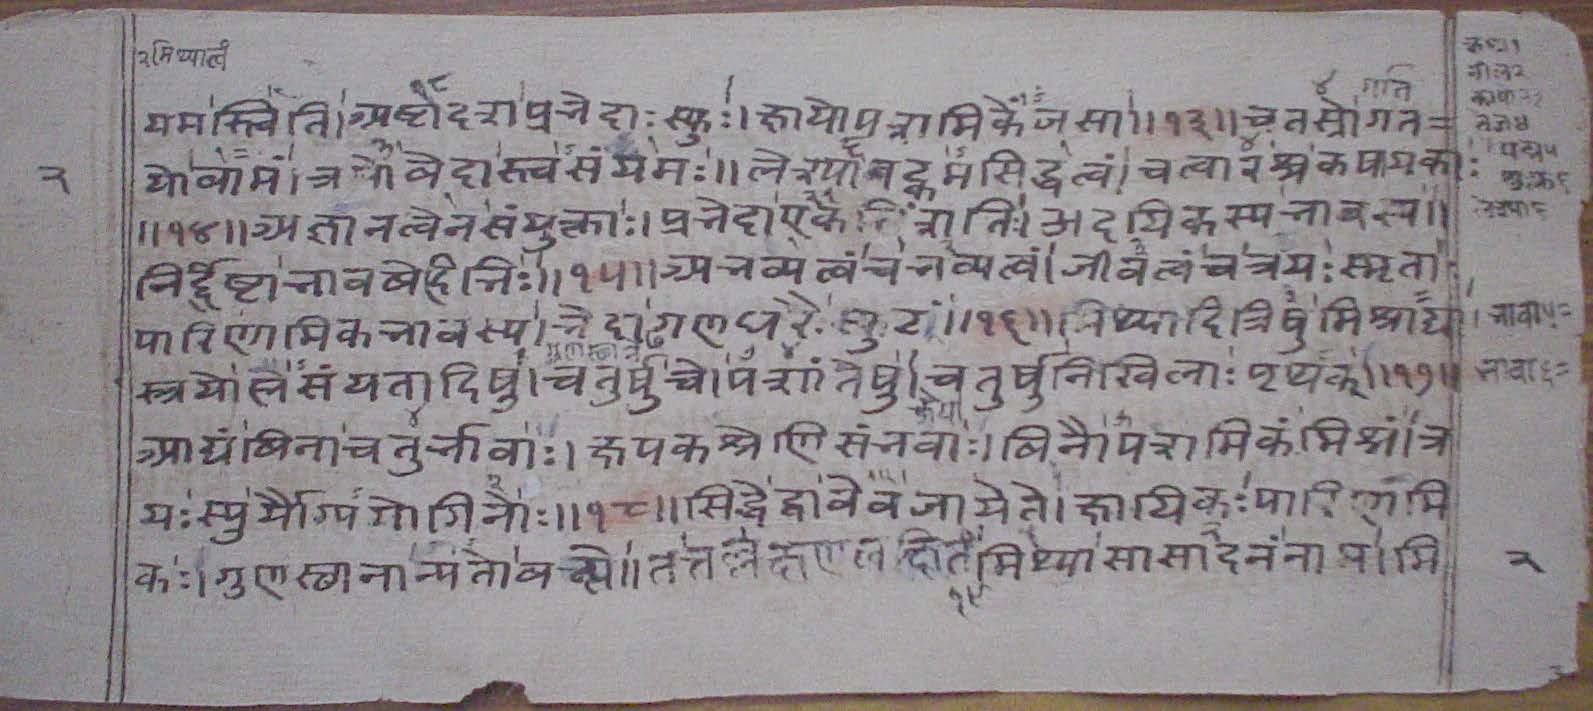 २मिथ्यात्वं
यमास्त्विति। अष्टादश प्रभेदाः स्युः। क्षायोपशमिकेंजसा॥१३॥ चतस्रो गत
यो वामं। त्रयो वेदास्त्वसंयमः॥ लेश्याषट्कमसिद्धत्वं। चत्वारश्च कषायकाः
॥१४॥ अज्ञानत्वेन संयुक्ताः। प्रभेदा एकविंशतिः। औदयिकस्य भावस्य।
निर्द्दिष्टा भाववेदिभिः॥१५॥ अभव्यत्वं च भव्यत्वं। जीवत्वं च त्रयः स्मृताः
पारिणामिकभावस्य। भेदा गणधरैः स्फुटं॥१६॥ मिथ्यादित्रिषु मिश्राद्या।
स्त्रयो लसंयतादिषु। चतुर्षु चोपशांतेषु। चतुर्षु निखिलाः पृथक्॥१७॥
आद्यं विना चतुर्भावाः। क्षपकश्रेणिसंभवाः। विनौपशमिकं मिश्रं। त्र
यः स्युर्योग्ययोगिनोः॥१८॥ सिद्धे द्वावेव जायेते। क्षायिकः पारिणामि
कः। गुणस्थानान्यतो वक्ष्ये॥ तत्तल्लक्षणलक्षितं मिथ्या सासादनं नाम। मि
२
२
गति
गुणस्थान
भावा५=
भावा६=